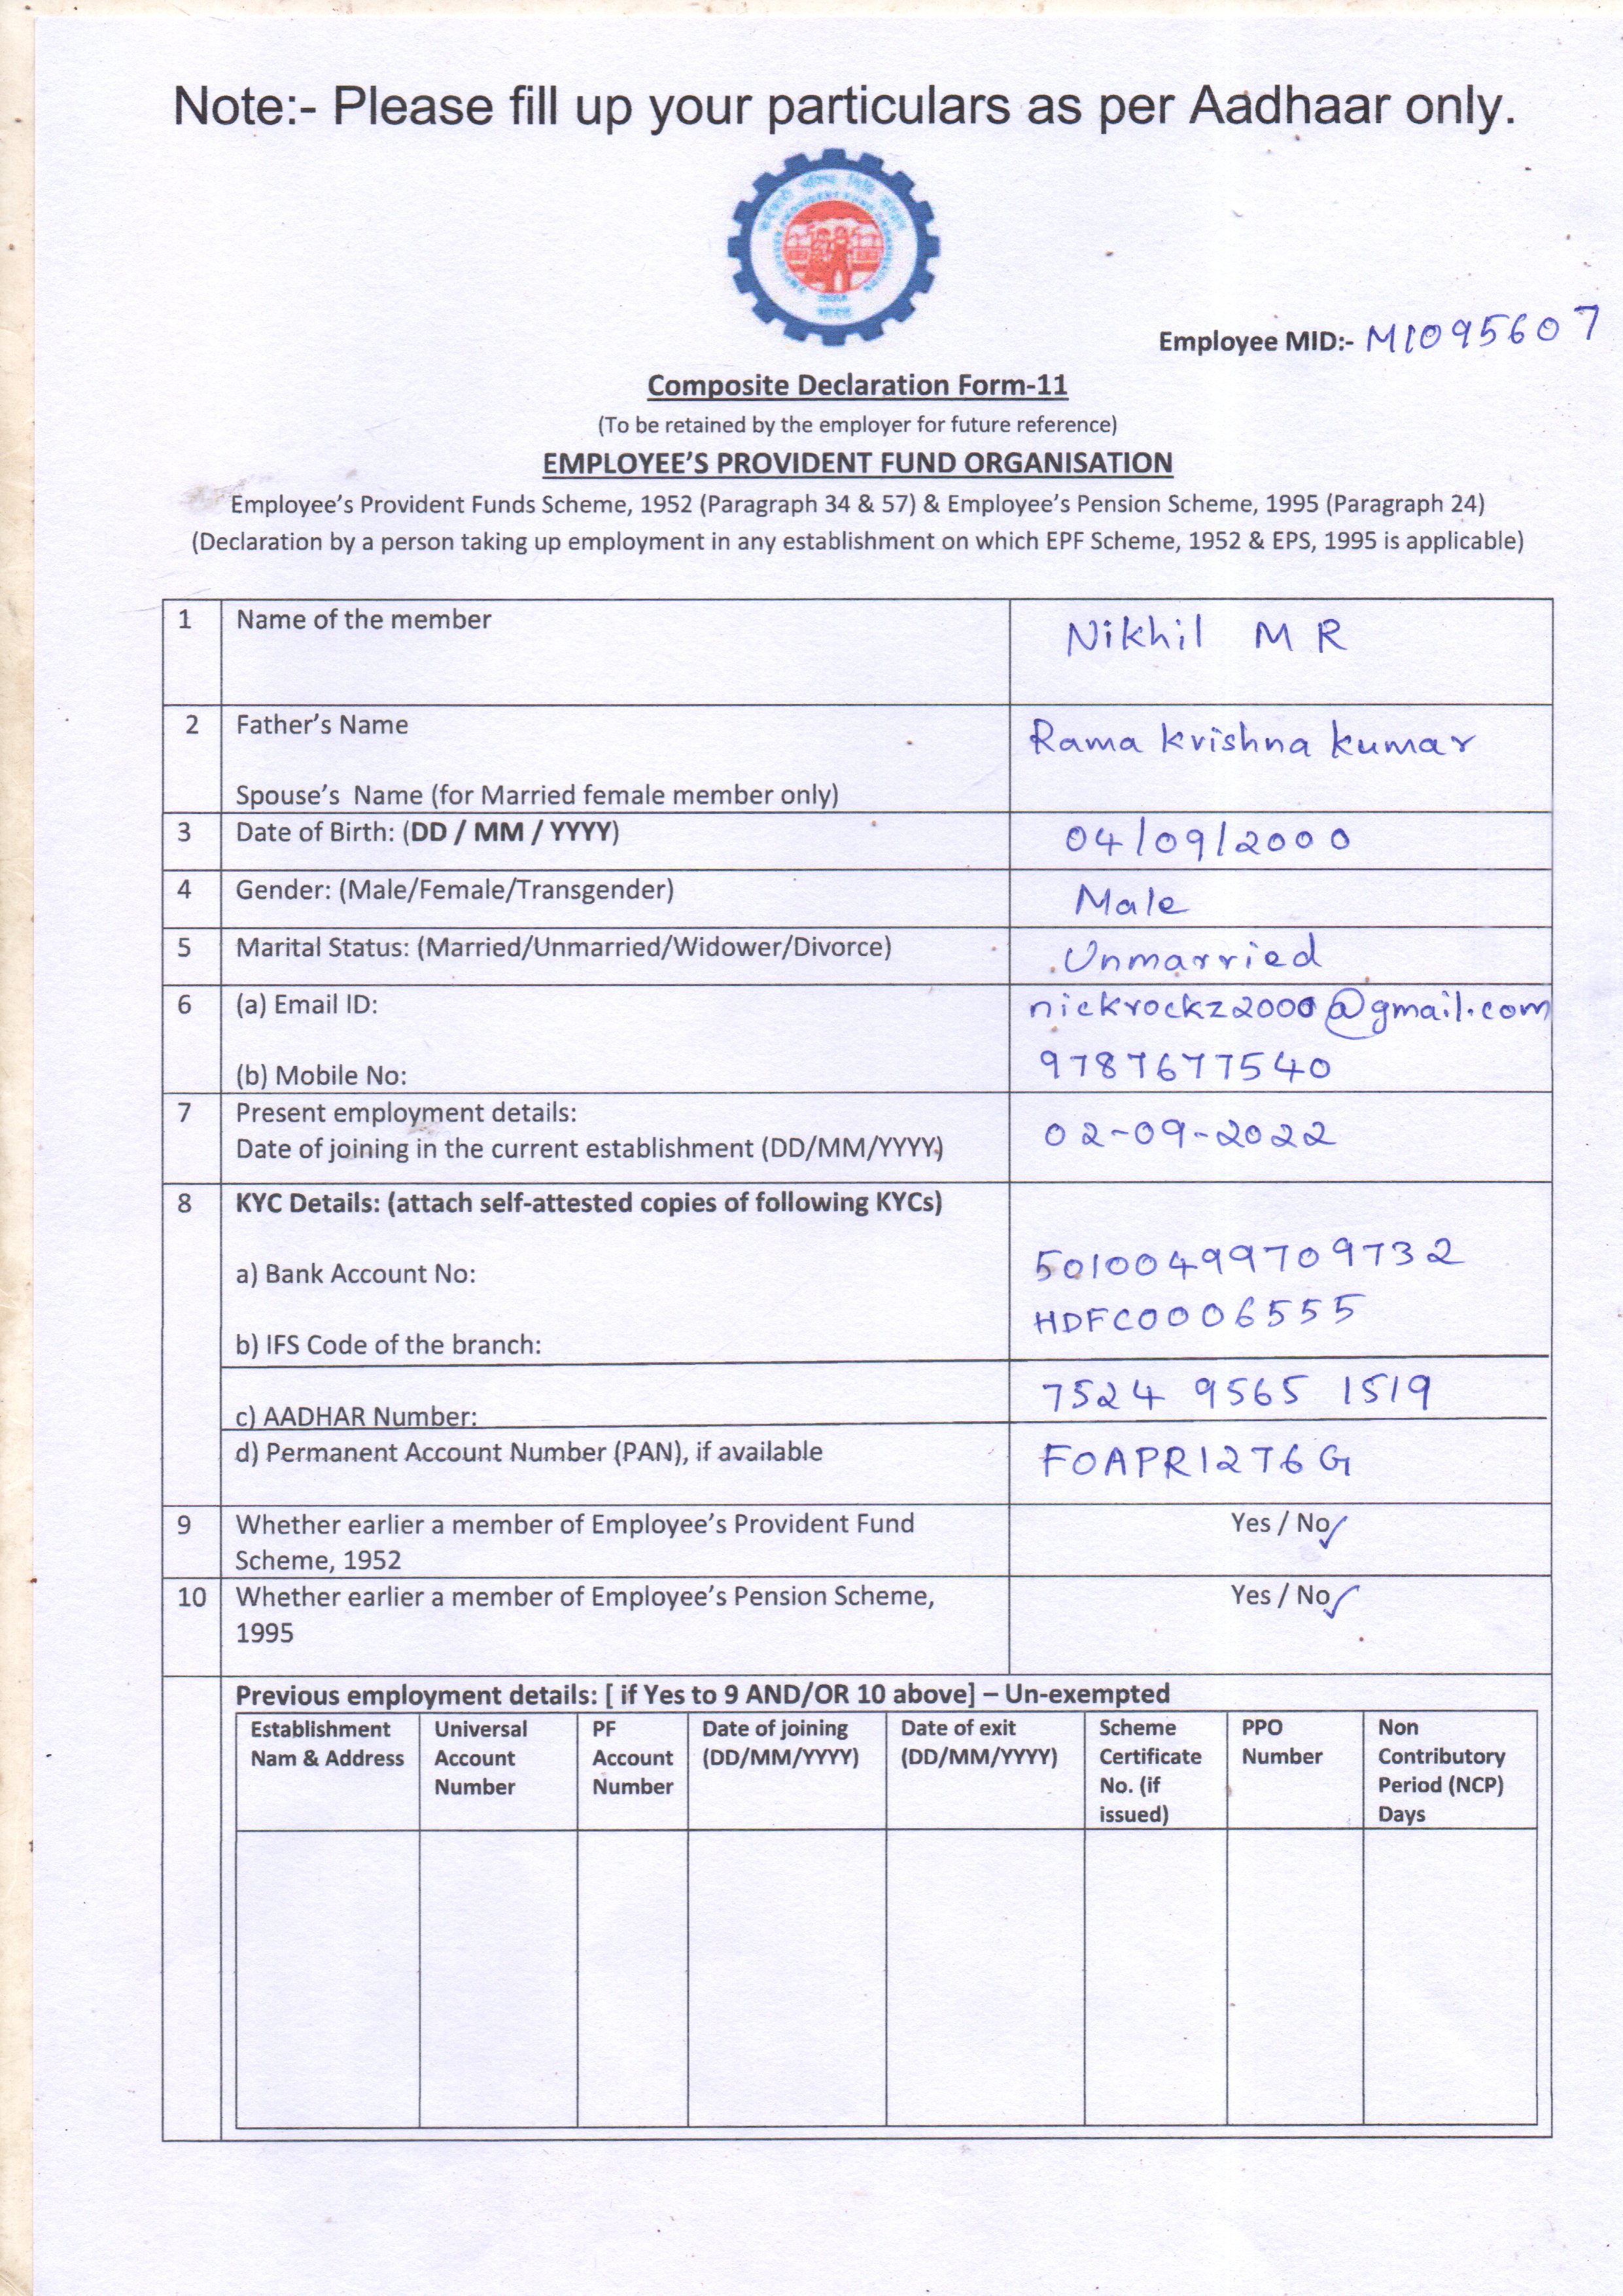 Note:- Please fill up your particulars as per Aadhaar only.
Employee MID:- M1095607
Composite Declaration Form-11
(To be retained by the employer for future reference)
EMPLOYEE'S PROVIDENT FUND ORGANISATION
Employee's Provident Funds Scheme, 1952 (Paragraph 34 & 57) & Employee's Pension Scheme, 1995 (Paragraph 24)
(Declaration by a person taking up employment in any establishment on which EPF Scheme, 1952 & EPS, 1995 is applicable)
1 Name of the member Nikhil M R
2 Father's Name Rama krishna kumar
Spouse's Name (for Married female member only)
3 Date of Birth: (DD / MM / YYYY) 04/09/2000
4 Gender: (Male/Female/Transgender) Male
5 Marital Status: (Married/Unmarried/Widower/Divorce) Unmarried
6 (a) Email ID: nickrockz2000@gmail.com
(b) Mobile No: 9787677540
7 Present employment details:
Date of joining in the current establishment (DD/MM/YYYY) 02-09-2022
8 KYC Details: (attach self-attested copies of following KYCs)
a) Bank Account No: 50100499709732
b) IFS Code of the branch: HDFC0006555
c) AADHAR Number: 7524 9565 1519
d) Permanent Account Number (PAN), if available FOAPR1276G
9 Whether earlier a member of Employee's Provident Fund Yes / No ✓
Scheme, 1952
10 Whether earlier a member of Employee's Pension Scheme, Yes / No ✓
1995
Previous employment details: [ if Yes to 9 AND/OR 10 above] – Un-exempted
Establishment Universal PF Date of joining Date of exit Scheme PPO Non
Nam & Address Account Account (DD/MM/YYYY) (DD/MM/YYYY) Certificate Number Contributory
Number Number No. (if Period (NCP)
issued) Days